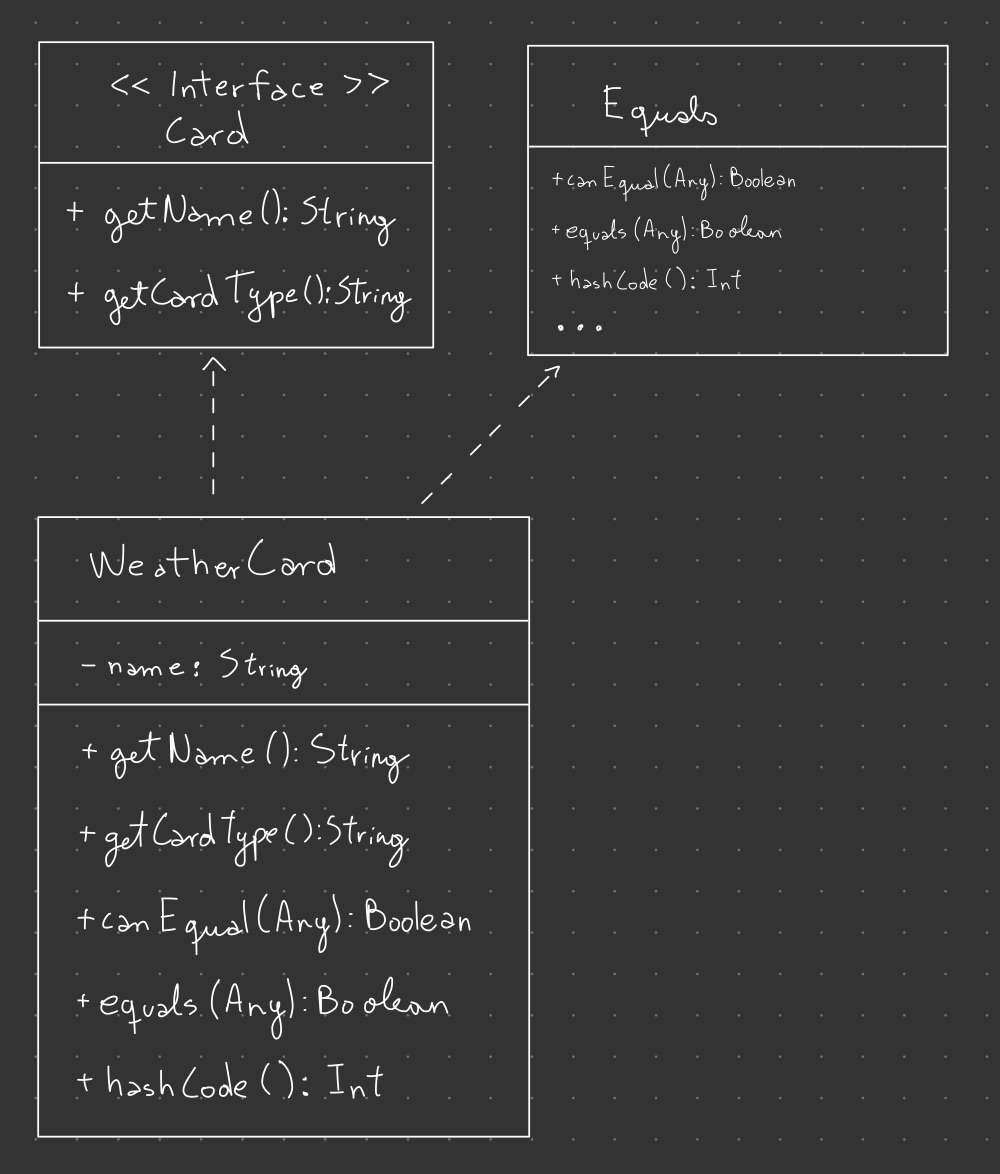 << Interface >>
Card
+ getName(): String
+ getCardType(): String
Equals
+ canEqual(Any): Boolean
+ equals(Any): Boolean
+ hashCode(): Int
...
WeatherCard
- name: String
+ getName(): String
+ getCardType(): String
+ canEqual(Any): Boolean
+ equals(Any): Boolean
+ hashCode(): Int